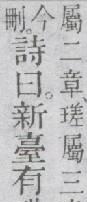 屬二章、瑳屬三
今
刪。
詩曰。新臺有